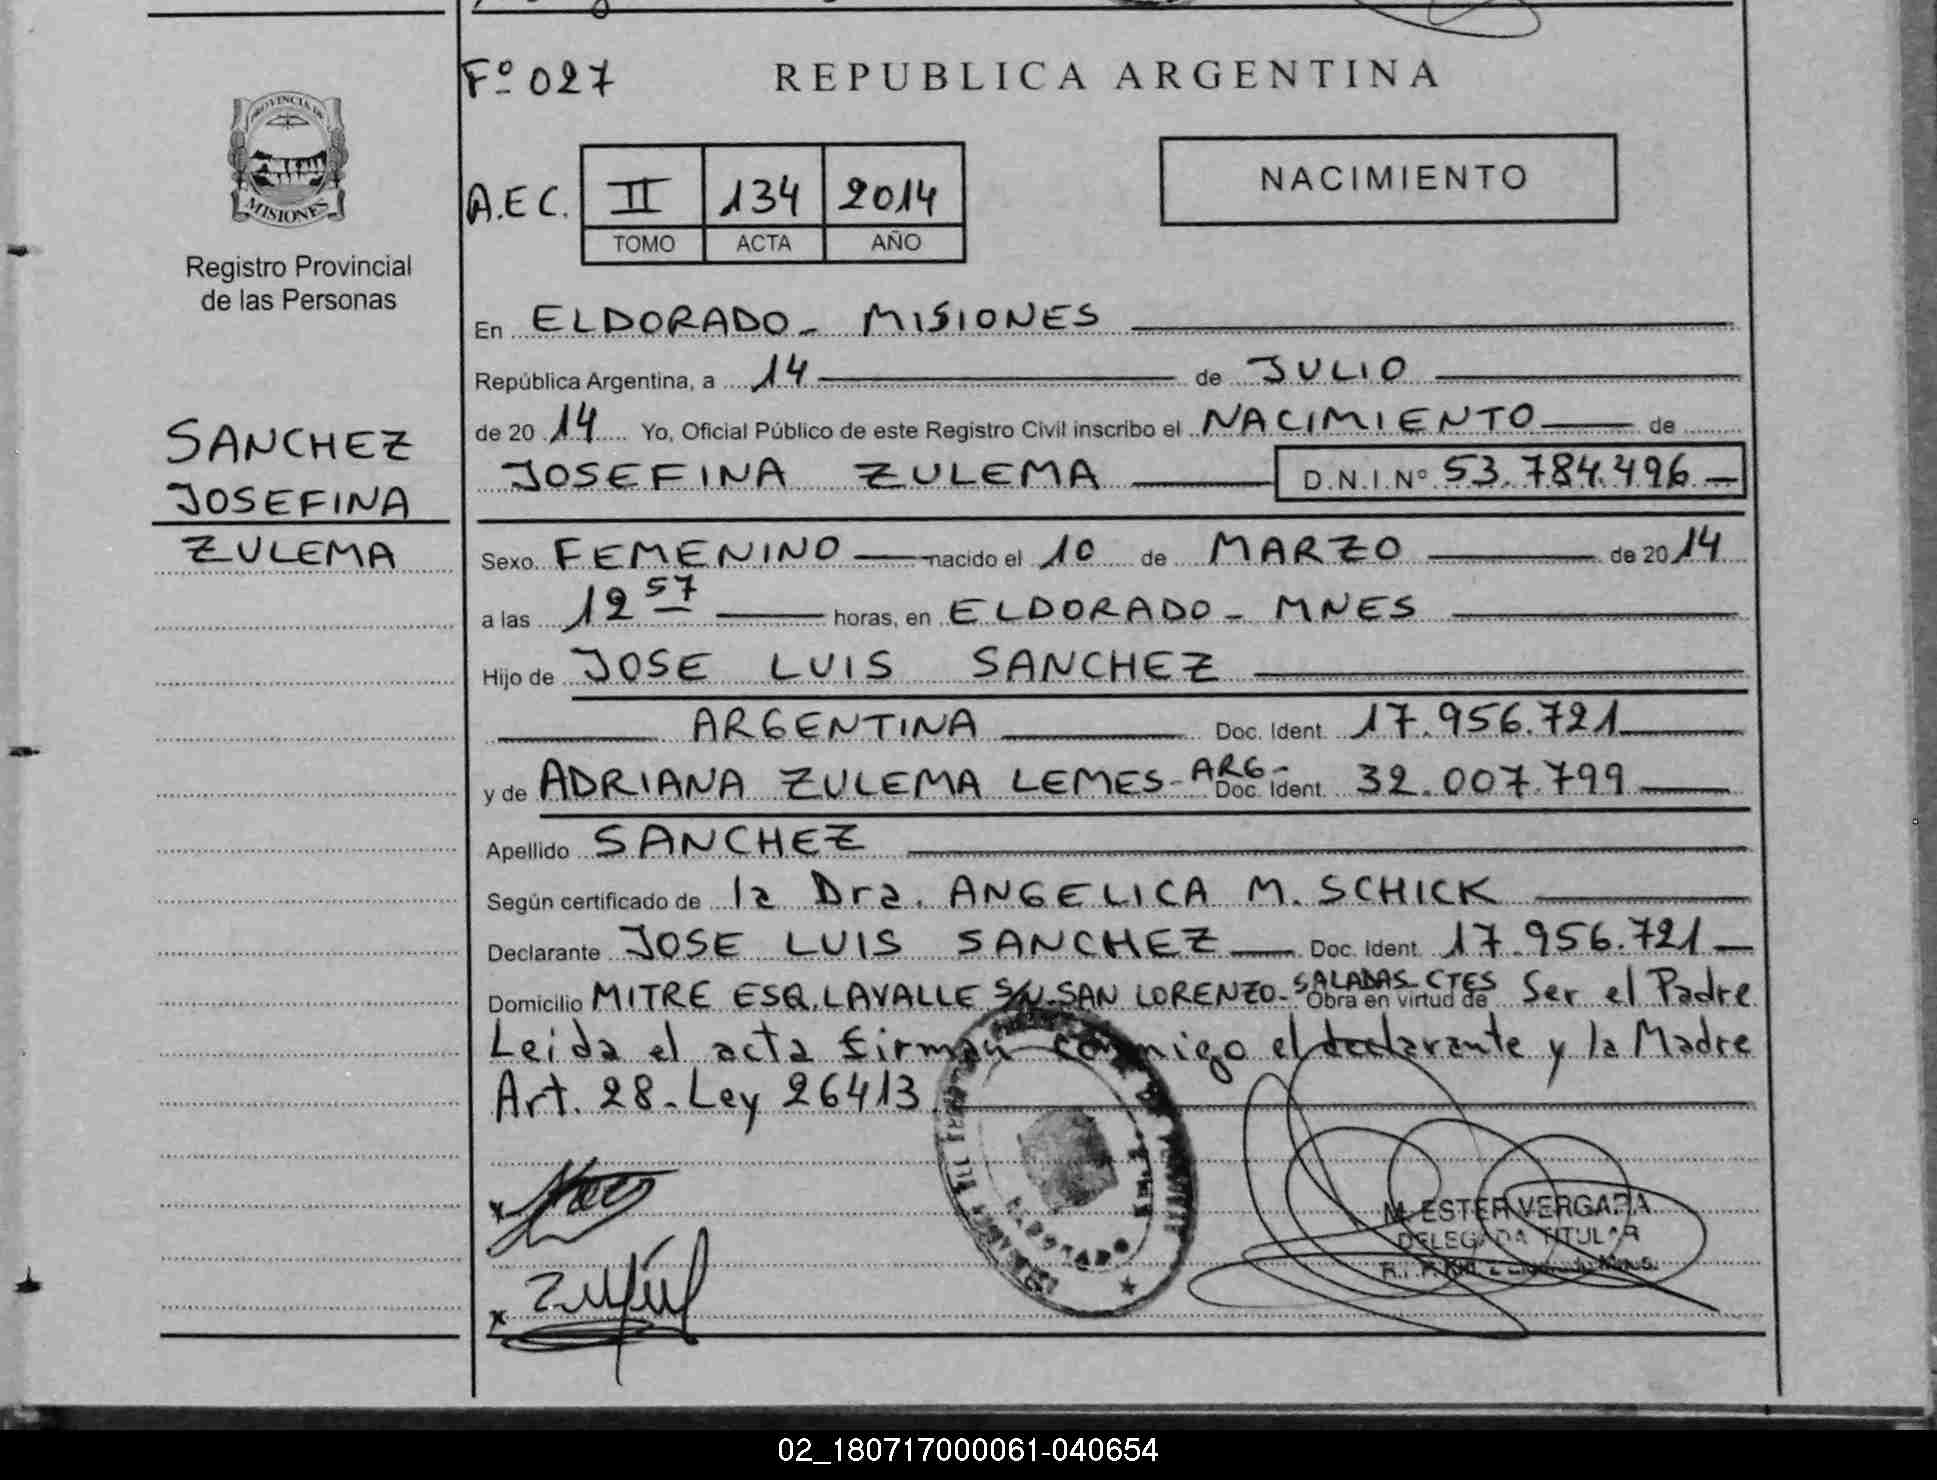 Fº 027
REPUBLICA ARGENTINA
PROVINCIA DE
MISIONES
Registro Provincial
de las Personas
A.E.C.
II 134 2014
TOMO ACTA AÑO
NACIMIENTO
SANCHEZ
JOSEFINA
ZULEMA
En ELDORADO - MISIONES
República Argentina, a 14 de JULIO
de 2014 Yo, Oficial Público de este Registro Civil inscribo el NACIMIENTO de
JOSEFINA ZULEMA D.N.I.Nº 53.784.496
Sexo FEMENINO nacido el 10 de MARZO de 2014
a las 12 57 horas, en ELDORADO - MNES
Hijo de JOSE LUIS SANCHEZ
ARGENTINA Doc. Ident. 17.956.721
y de ADRIANA ZULEMA LEMES - ARG - Doc. Ident. 32.007.799
Apellido SANCHEZ
Según certificado de la Dra. ANGELICA M. SCHICK
Declarante JOSE LUIS SANCHEZ Doc. Ident. 17.956.721
Domicilio MITRE ESQ. LAVALLE S/N - SAN LORENZO - SALADAS - CTES Obra en virtud de Ser el Padre
Leida el acta firman conmigo el declarante y la Madre
Art. 28 - Ley 26413
M. ESTER VERGARA
DELEGADA TITULAR
ELDORADO
02_180717000061-040654